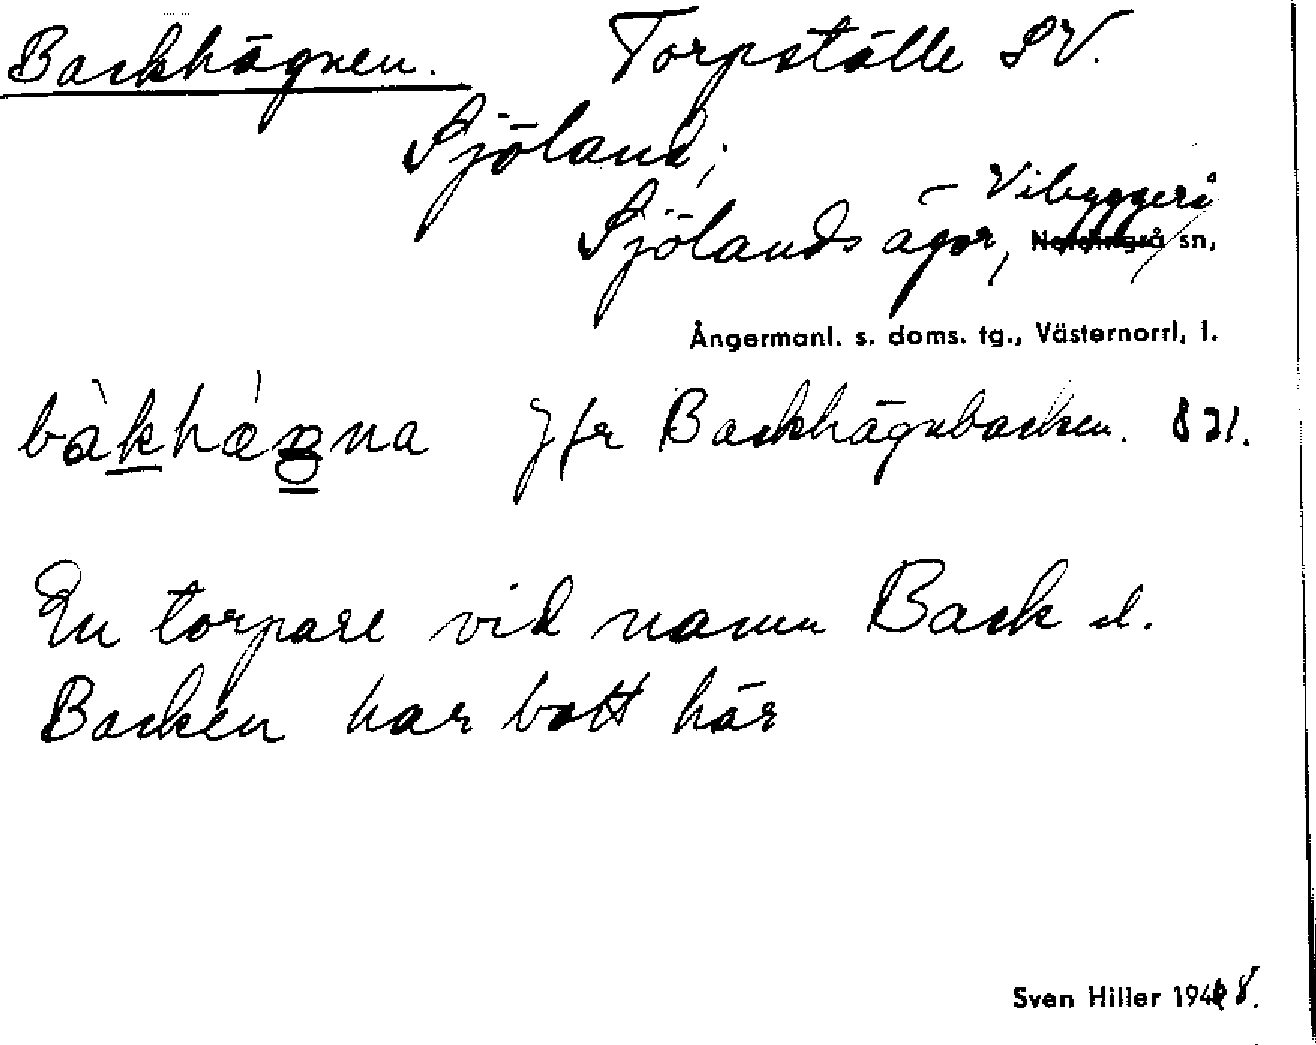 Backhägnen. Torpställe SV.
Sjöland;
Vibyggerå
Sjölands ägor, Nordingrå sn,
Ångermanl. s. doms. tg., Västernorrl, l.
bàkhǽgna Jfr Backhägnbacken.
En torpare vid namn Back el.
Backen har bott här
Sven Hiller 1948.